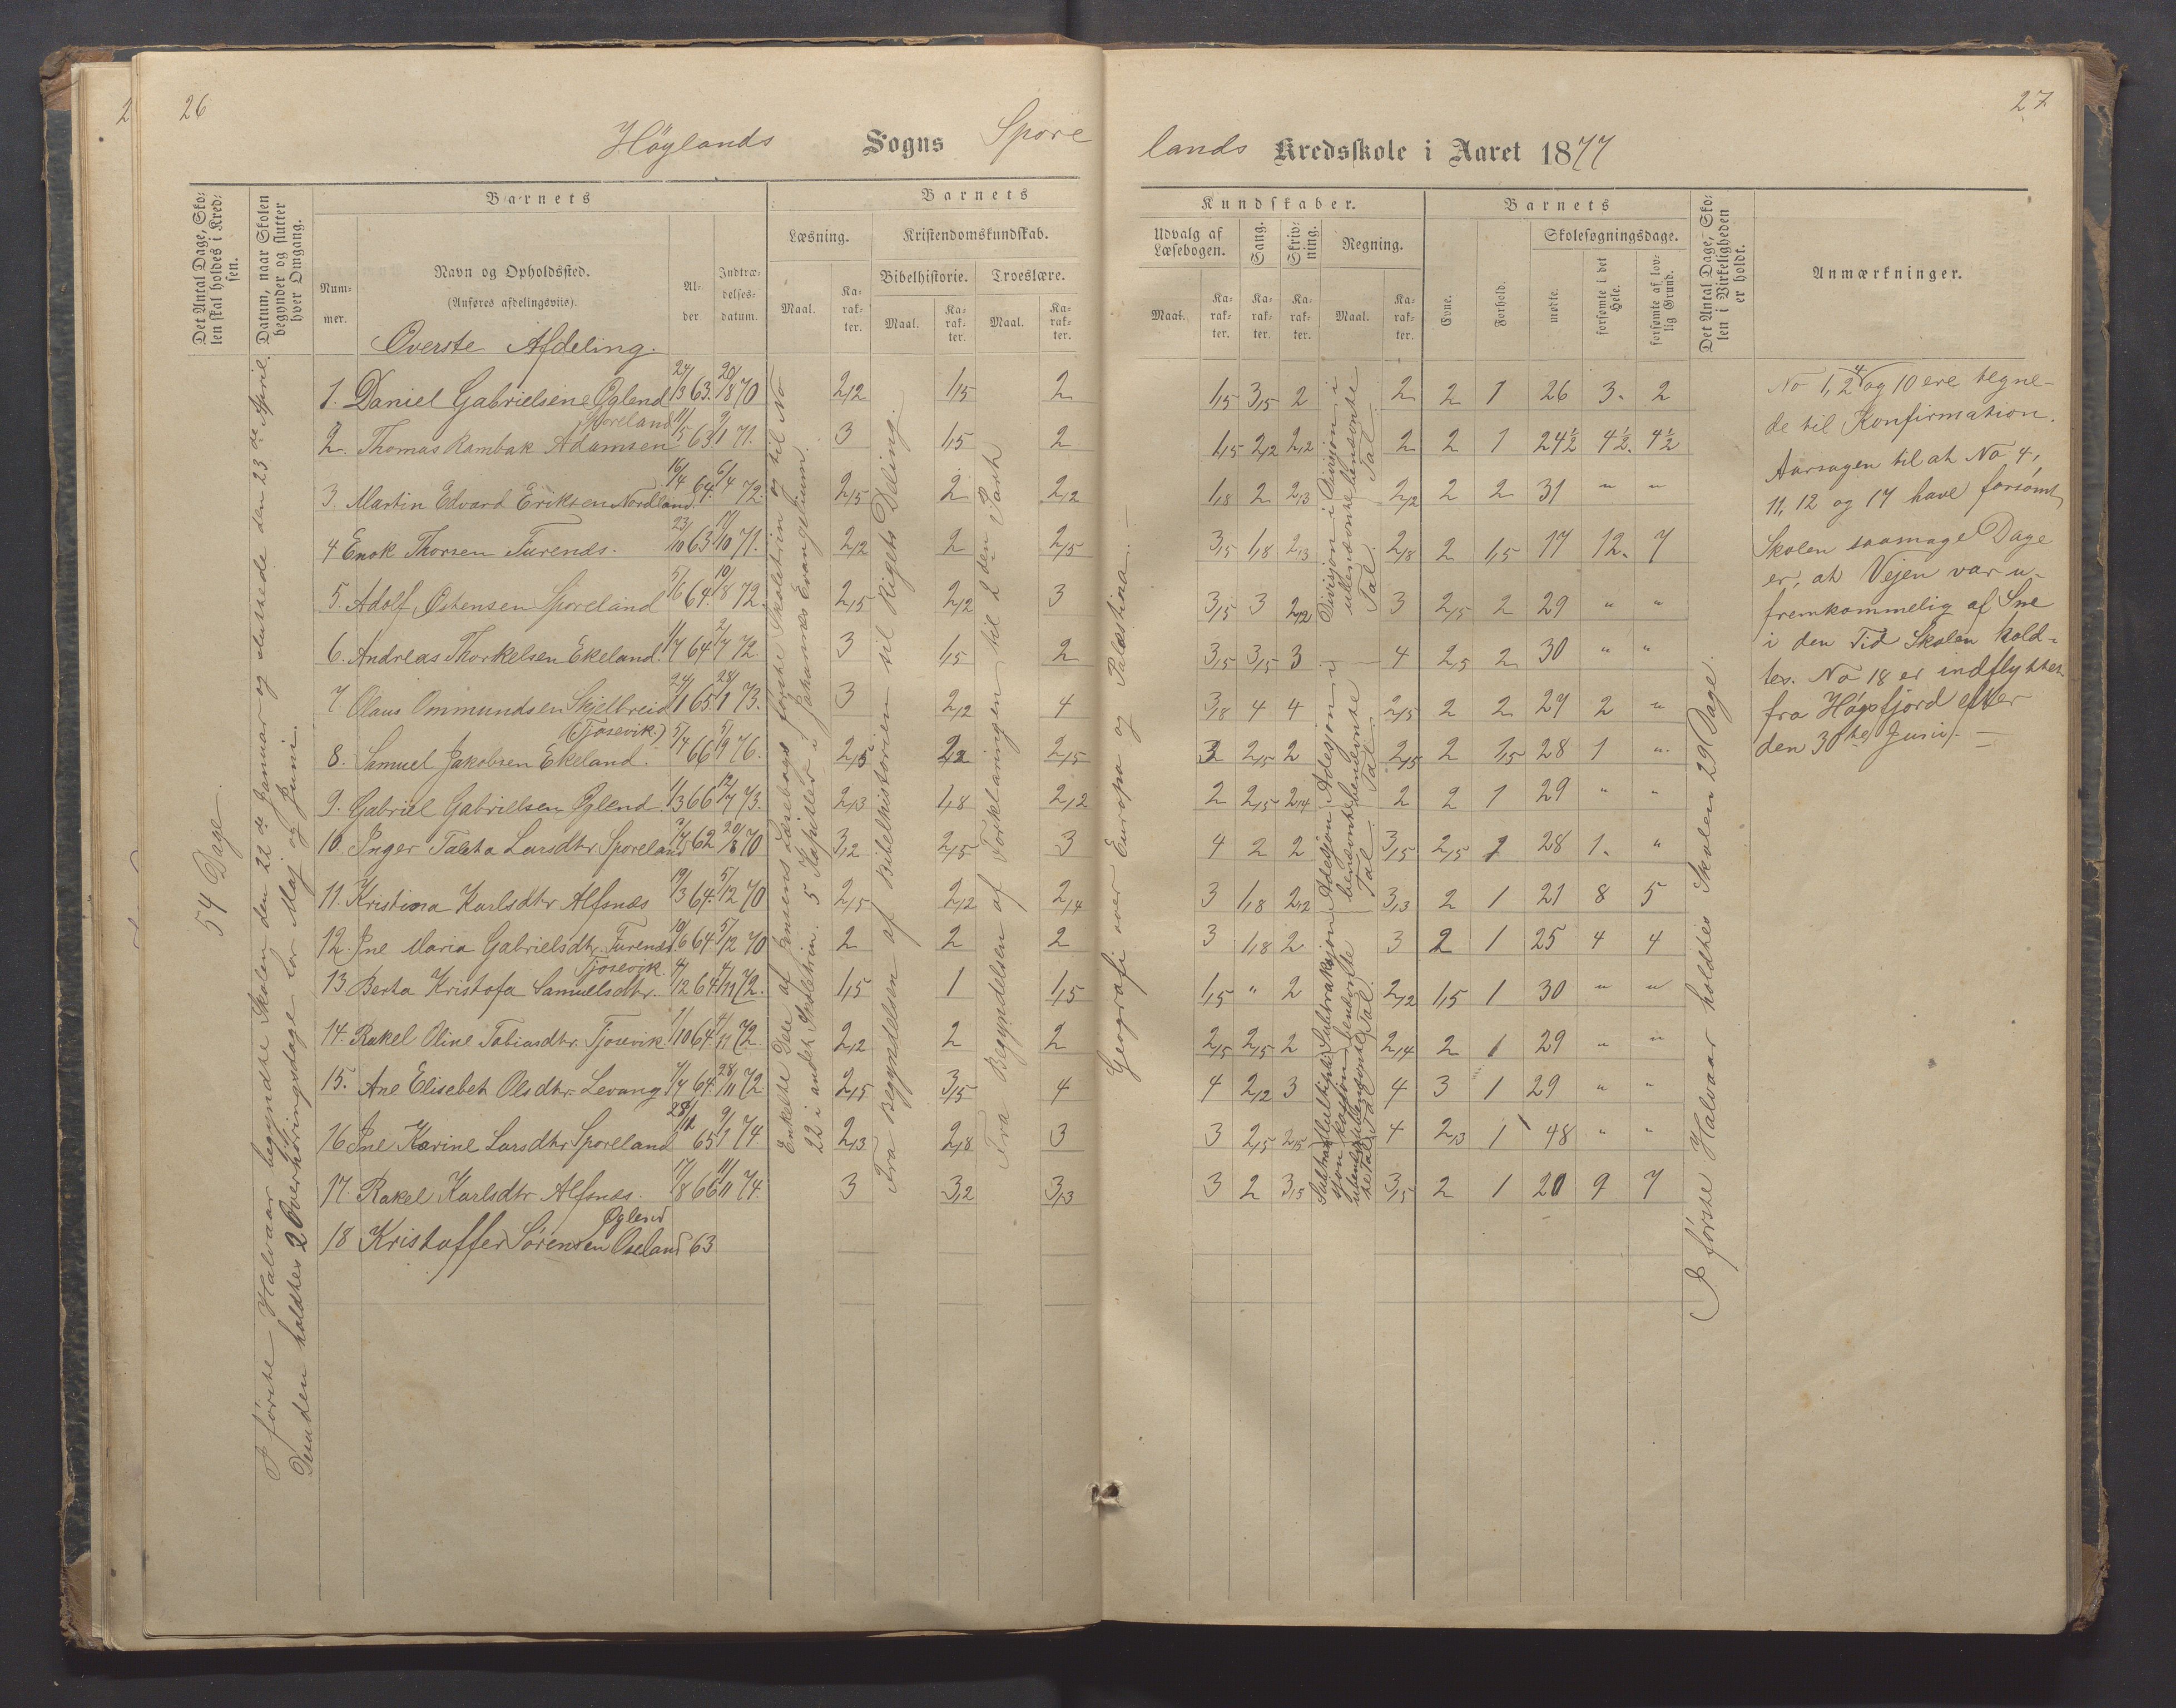 26
Høylands Sogns Spore
Det Antal Dage, Sko-
len skal holdes i Kred-
sen.
Datum, naar Skolen
begynder og slutter
hver Omgang.
Barnets
Num-
mer.
Navn og Opholdssted.
(Anføres afdelingsviis).
Al-
der.
Indtræ-
delses-
datum.
Barnets
Læsning.
Maal.
Ka-
rak-
ter.
Kristendomskundskab.
Bibelhistorie.
Maal.
Ka-
rak-
ter.
Troeslære.
Maal.
Ka-
rak-
ter.
54 Dage.
I første Halvaar begyndte Skolen den 22de Januar og sluttede den 23de April.
Desuden holdtes 2 Overhøringsdage for Maj og Juni.
Øverste Afdeling.
1. Daniel Gabrielsen Øglend 24/3 63. 20/8 70 2,2 1,5 2
Sporeland
2. Thomas Rambak Adamsen 11/5 63 9/1 71. 3 1,5 2
3. Martin Edvard Eriksen Nordland 16/4 64. 6/4 72. 2,5 2 2,2
4 Enok Thorsen Furenes. 23/10 63 17/10 71. 2,2 2 2,5
5. Adolf Østensen Sporeland 5/6 64. 10/8 72. 2,5 2,2 3
6. Andreas Thorkelsen Ekeland. 1/7 64 2/7 72. 3 1,5 2
7. Olaus Ommundsen Skjelbreid 24/1 65 28/1 73. 3 2,2 4
(Tjøsevik.)
8. Samuel Jakobsen Ekeland. 5/7 66 5/9 76. 2,5 2,2 2,5
9. Gabriel Gabrielsen Øglend. 1/3 66 12/7 73. 2,3 1,8 2,2
10. Inger Taleta Larsdtr. Sporeland 3/7 62 20/8 70 3,2 2,5 3
11. Kristina Karlsdtr Alfsnes 19/3 64. 5/12 70 2,5 2,2 2,4
12. Ine Maria Gabrielsdtr. Furenes 19/6 64. 5/12 70 2 2 2
Tjøsevik.
13 Berta Kristofa Samuelsdtr. 4/12 64 4/11 72. 1,5 1 1,5
14. Rakel Oline Tobiasdtr. Tjøsevik 1/10 64. 4/11 72. 2,2 2 2
15. Ane Elisebet Olsdtr. Levang 1/7 64. 28/11 72 2,5 3,5 4
16 Ine Karine Larsdtr Sporeland 28/11 65 9/1 74. 2,3 2,8 3
17. Rakel Karlsdtr Alfsnes. 17/8 66 11/11 74. 3 3,2 3,3
Øglend
18 Kristoffer Sørensen Oseland 63
Enkelte Dele af Jensens Læsebogs første Skoletrin og til No
22 i andet Skoletrin. 5 Kapitler i Johannes Evangelium.
Fra Begyndelsen af Bibelhistorien til Rigets Deling.
Fra Begyndelsen af Forklaringen til 2den Part
27
lands Kredsskole i Aaret 1877
Kundskaber.
Udvalg af
Læsebogen.
Maal.
Ka-
rak-
ter.
Sang.
Ka-
rak-
ter.
Skriv-
ning.
Ka-
rak-
ter.
Regning.
Maal.
Ka-
rak-
ter.
Barnets
Evne.
Forhold.
Skolesøgningsdage.
mødte.
forsømte i det
Hele.
forsømte af lov-
lig Grund.
Det Antal Dage, Sko-
len i Virkeligheden
er holdt.
Anmærkninger.
Geografi over Europa og Palæstina.
1,5 3,5 2 2 2 1 26 3. 2
1,5 2,2 2,2 2 2 1 24½ 4½. 4½
1,8 2 2,3 2,2 2 2 31 " "
3,5 1,8 2,3 2,8 2 1,5 17 12. 7
3,5 3 2,2 3 2,5 2 29 " "
3,5 3,5 3 4 2,5 2 30 " "
3,8 4 4 2,5 2 2 29 2 "
3 2,5 2 2,5 2 1,5 28 1 "
2 2,5 2,4 2 2 1 29 " "
4 2 2 3,5 2,5 1 28 1. "
3 1,8 2,2 3,3 2 1 21 8 5
3 1,8 2 3 2 1 25 4 4
1,5 " 2 2,2 1,5 1 30 " "
2,5 2,5 2 2,4 2 1 29 " "
4 2,2 3 4 3 1 29 " "
3 2,5 2,5 4 2,3 1 48 " "
3 2 3,5 3,5 2 1 20 9 7
Divisjon i
ubenævnte
Tal.
Divisjon i
benævnte
Tal
Adesjon i
benævnte
Tal.
Adesjon i
benævnte
Tal
Subtraksjon
benævnte
Tal.
I første Halvaar holdtes Skolen 29 Dage.
No 1, 2, 4 og 10 ere tegne-
de til Konfirmation.
Aarsagen til at No 4,
11, 12 og 17 have forsømt
Skolen saamage Dage
er, at Vejen var u-
fremkommelig af Sne
i den Tid Skolen hold-
tes. No 18 er indflyttet
fra Høgsfjord efter
den 30te Juni. —